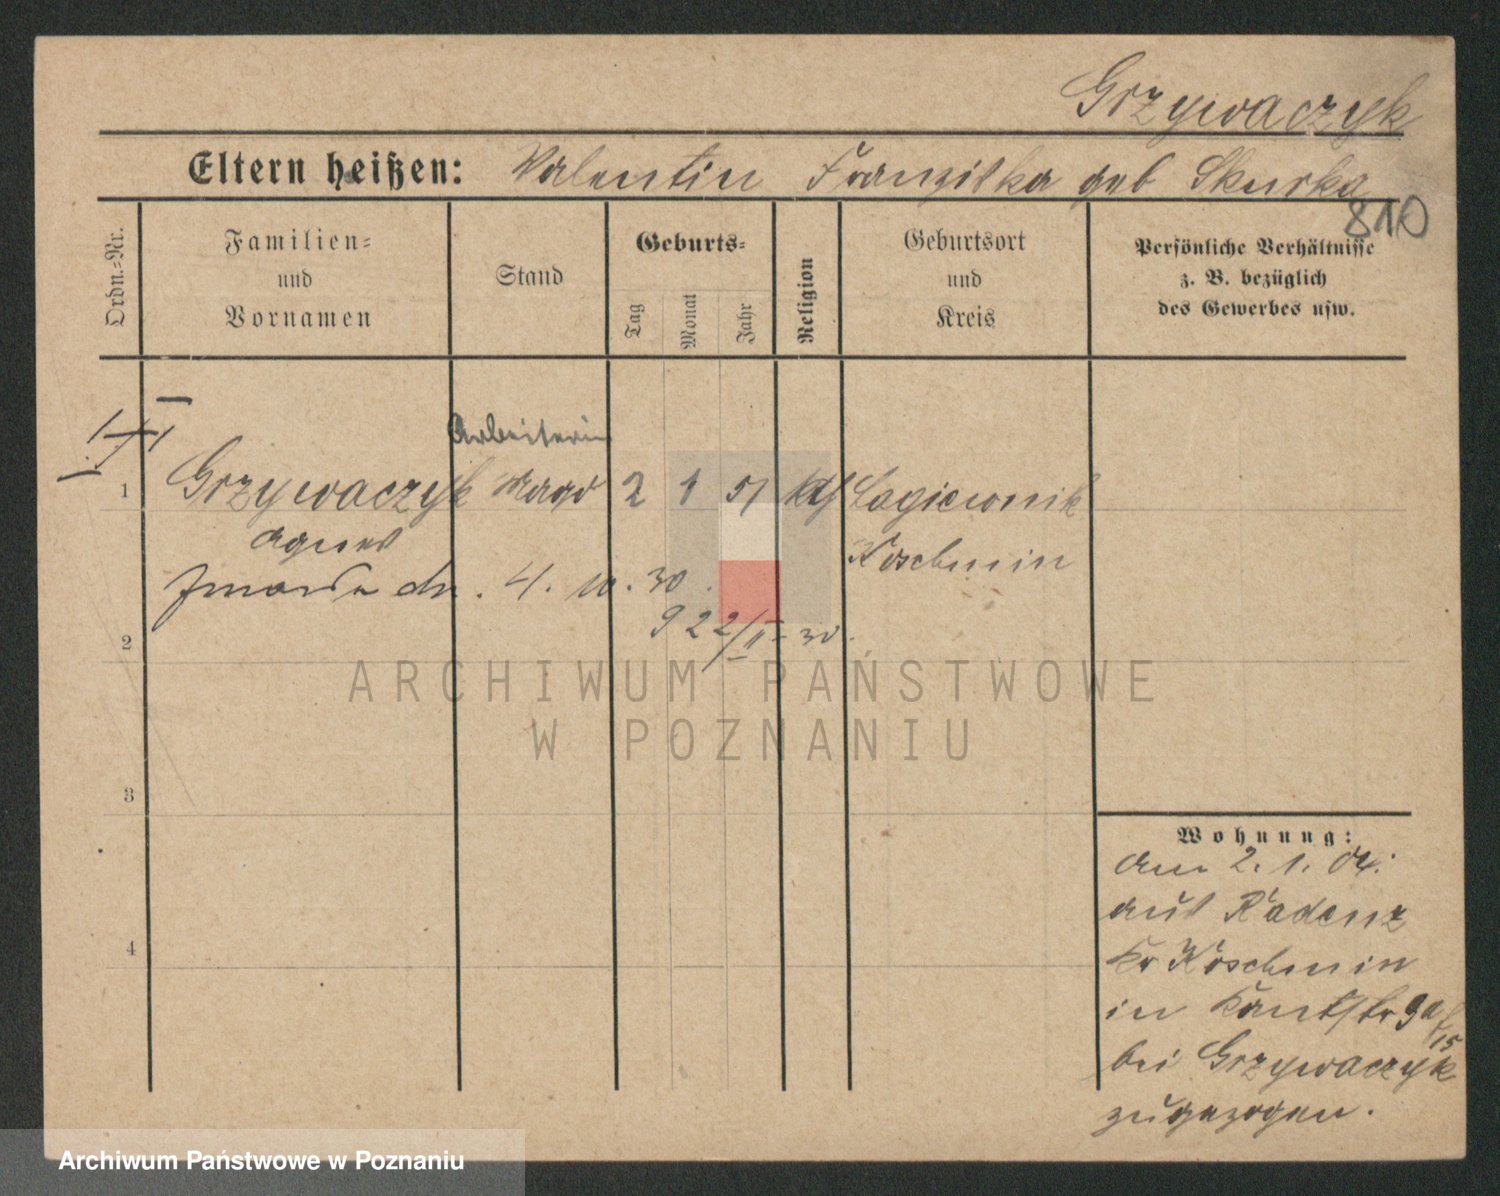 Grzywaczyk
Eltern heißen: Valentin Franziska geb Skurka
810
Ordn.-Nr.
Familien-
und
Vornamen
Stand
Geburts-
Tag
Monat
Jahr
Religion
Geburtsort
und
Kreis
Persönliche Verhältnisse
z. B. bezüglich
des Gewerbes usw.
Arbeiterin
1 Grzywaczyk Magd 2 1 51 kth Lagiewnik
Agnes Koschmin
zmarła dn. 4. 10. 30.
922/II-30.
2
ARCHIWUM PAŃSTWOWE
W POZNANIU
3
Wohnung:
am 2. 1. 04.
aus Radenz
Kr Koschmin
in Kantstr 9a
bei Grzywaczyk
zugezogen.
4
Archiwum Państwowe w Poznaniu